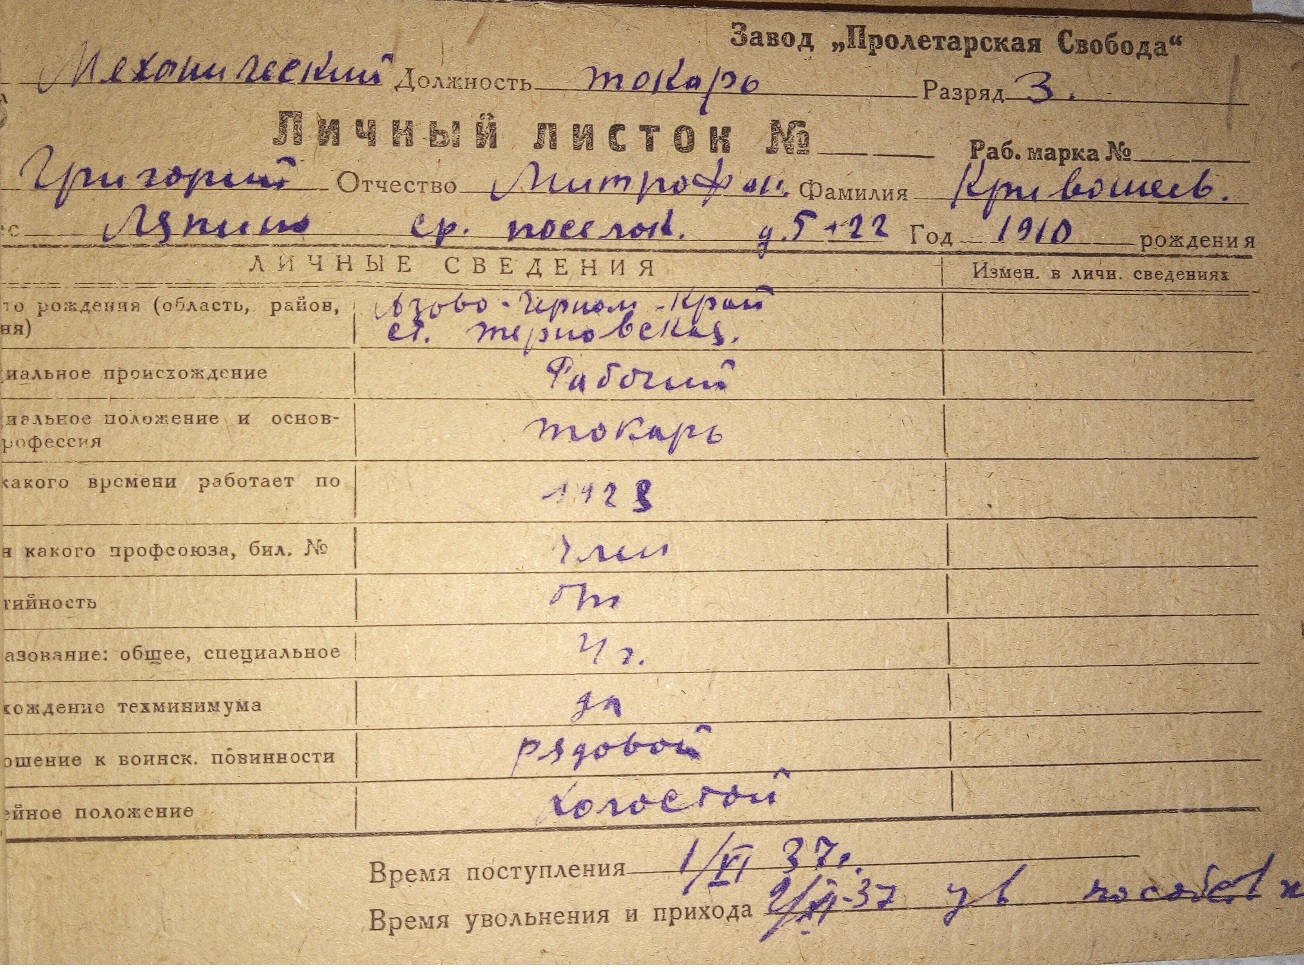 Завод „Пролетарская Свобода“
Механический Должность токарь Разряд 3.
Личный листок №
Раб. марка №
Григорий Отчество Митрофан. Фамилия Кривошеев.
ес Ляпино ср. поселок. д. 5 - 22 Год 1910 рождения
ЛИЧНЫЕ СВЕДЕНИЯ Измен. в личн. сведениях
то рождения (область, район, Азово-Черном. Край
ня) ст. Терновская.
иальное происхождение Рабочий
иальное положение и основ-
рофессия токарь
какого времени работает по 1928
н какого профсоюза, бил. № член
тийность б/п
азование: общее, специальное 4 г.
хождение техминимума да
ошение к воинск. повинности рядовой
ейное положение холостой
Время поступления 1/VI 37г.
Время увольнения и прихода 37 ув по